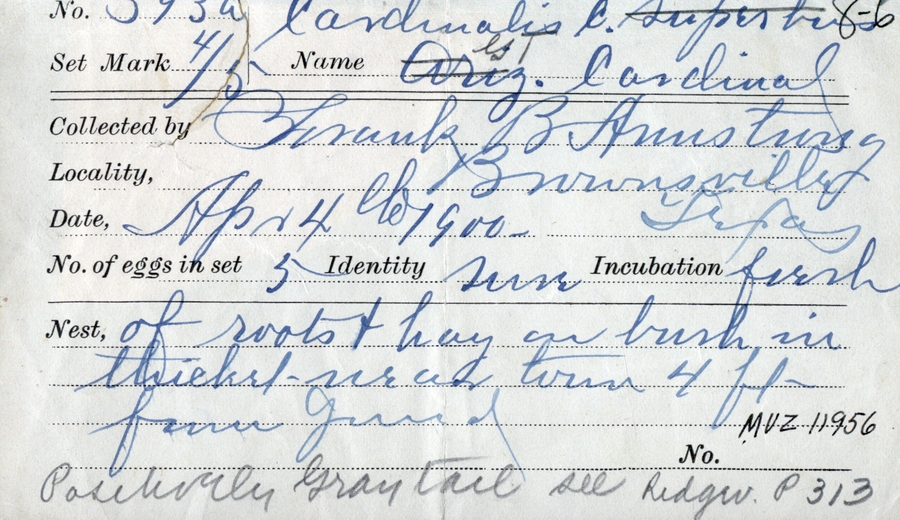 No. 593a Cardinalis c. superbus 8-6
Set Mark 4/5 Name Ariz. Cardinal
Collected by Frank B Armstrong
Locality, Brownsville
Date, Apr 4th 1900- Texas
No. of eggs in set 5 Identity sure Incubation fresh
Nest, of roots & hay on bush in
thicket-near town 4 ft-
from Ground
MVZ 11956
No.
Positively Graytail see Ridgw. P 313